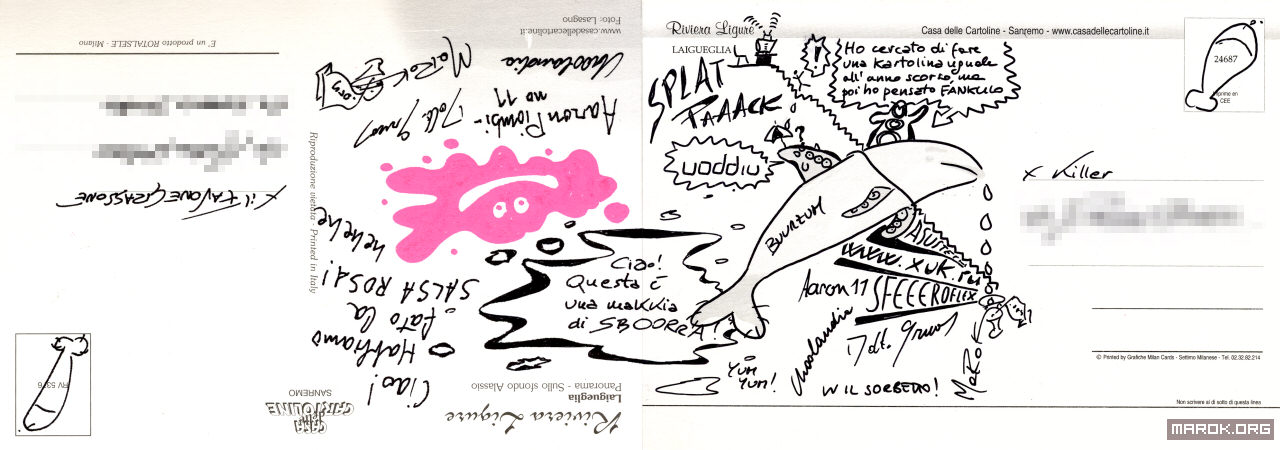 E' un prodotto ROTALSELE - Milano
www.casadellecartoline.it
Foto: Lasagno
MaRoK
.org
Dott. Gruos
Ukoolandia
Aaron
no 11
x il
Riproduzione vietata - Printed in Italy
hehehe
Ciao!
Habbiamo
fato la
SALSA ROSA!
RV 53
Riviera Ligure
Laigueglia
Panorama - Sullo sfondo Alassio
CASA
delle
CARTOLINE
SANREMO
Riviera Ligure
LAIGUEGLIA
Casa delle Cartoline - Sanremo - www.casadellecartoline.it
24687
CEE
!
Ho cercato di fare
una kartolina uguale
all'anno scorso, ma
poi ho pensato FANKULO
SPLAT
PAAACK
nippon
?
BUURZUM
x Killer
Ciao!
Questa è
una makkia
di SBOORRA!
www.xuk.ru
SFEEEROFLEX
Aaron 11
Ukoolandia
Dott. Gruos
MaRoK
?
YUM
YUM!
W IL SORBETTO!
© Printed by Grafiche Milan Cards - Settimo Milanese - Tel. 02.32.82.214
Non scrivere al di sotto di questa linea
MAROK.ORG